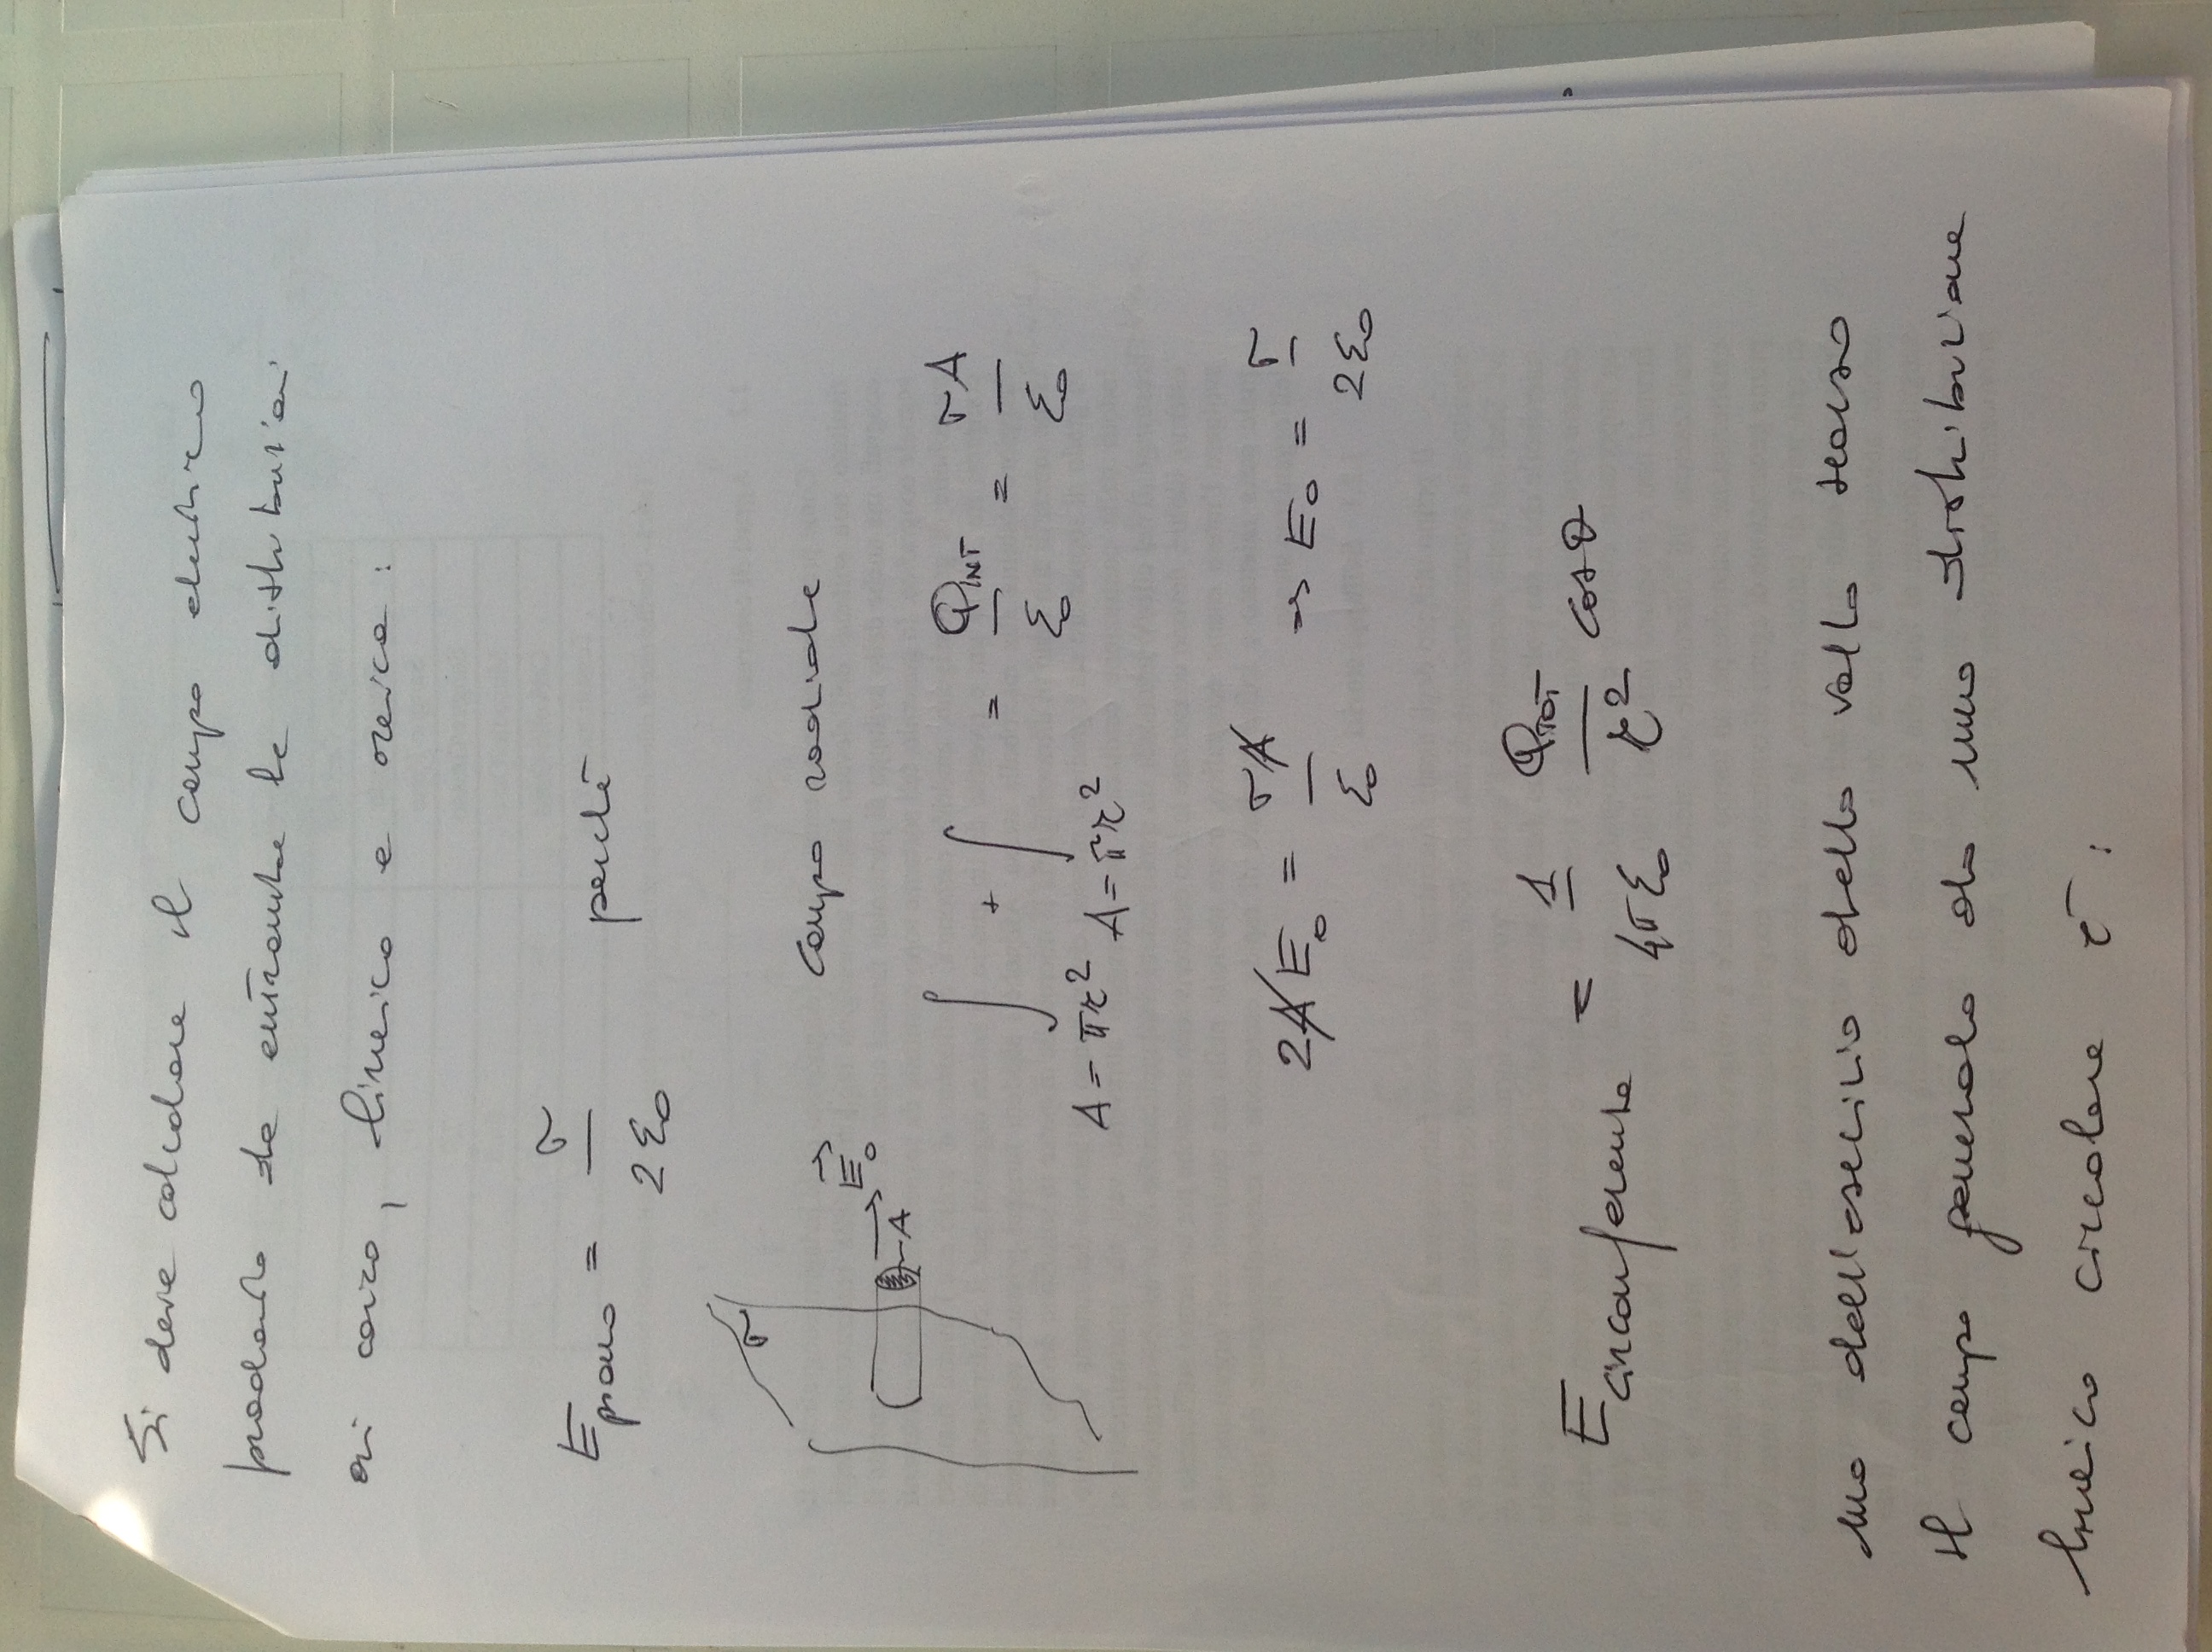 Si deve calcolare il campo elettrico
prodotto da entrambe le distribuzioni
di carica, lineica e areica:
E piano = σ / 2ε₀ perché
σ
campo radiale
E⃗₀
A
∫ + ∫ = Q INT / ε₀ = σA / ε₀
A = πr² A = πr²
2A E₀ = σA / ε₀ => E₀ = σ / 2ε₀
E circonferenza = 1 / 4πε₀ Q TOT / r² cosθ
ma dall'esercizio della volta scorsa
il campo generato da una distribuzione
lineica circolare è: